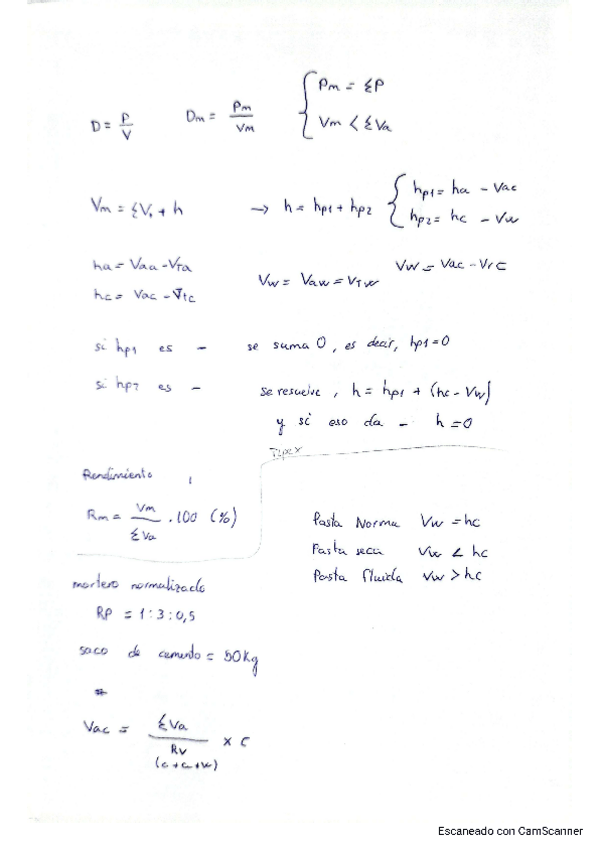 D = P/V   Dm = Pm/Vm   { Pm = ΣP
Vm < ΣVa
Vm = ΣVr + h   → h = hp1 + hp2   { hp1 = ha - Vac
hp2 = hc - Vw
ha = Vaa - Vra
Vw = Vaw = Vrw   Vw = Vac - Vrc
hc = Vac - Vrc
si hp1 es -   se suma 0, es decir, hp1=0
si hp2 es -   se resuelve, h = hp1 + (hc - Vw)
y si eso da -   h = 0
Tipex
Rendimiento
Rm = Vm/ΣVa · 100 (%)
Pasta Norma   Vw = hc
Pasta seca   Vw < hc
Pasta fluida   Vw > hc
mortero normalizado
RP = 1:3:0,5
saco de cemento = 50Kg
*
Vac = ΣVa / Rv (c+a+w) x c
Escaneado con CamScanner